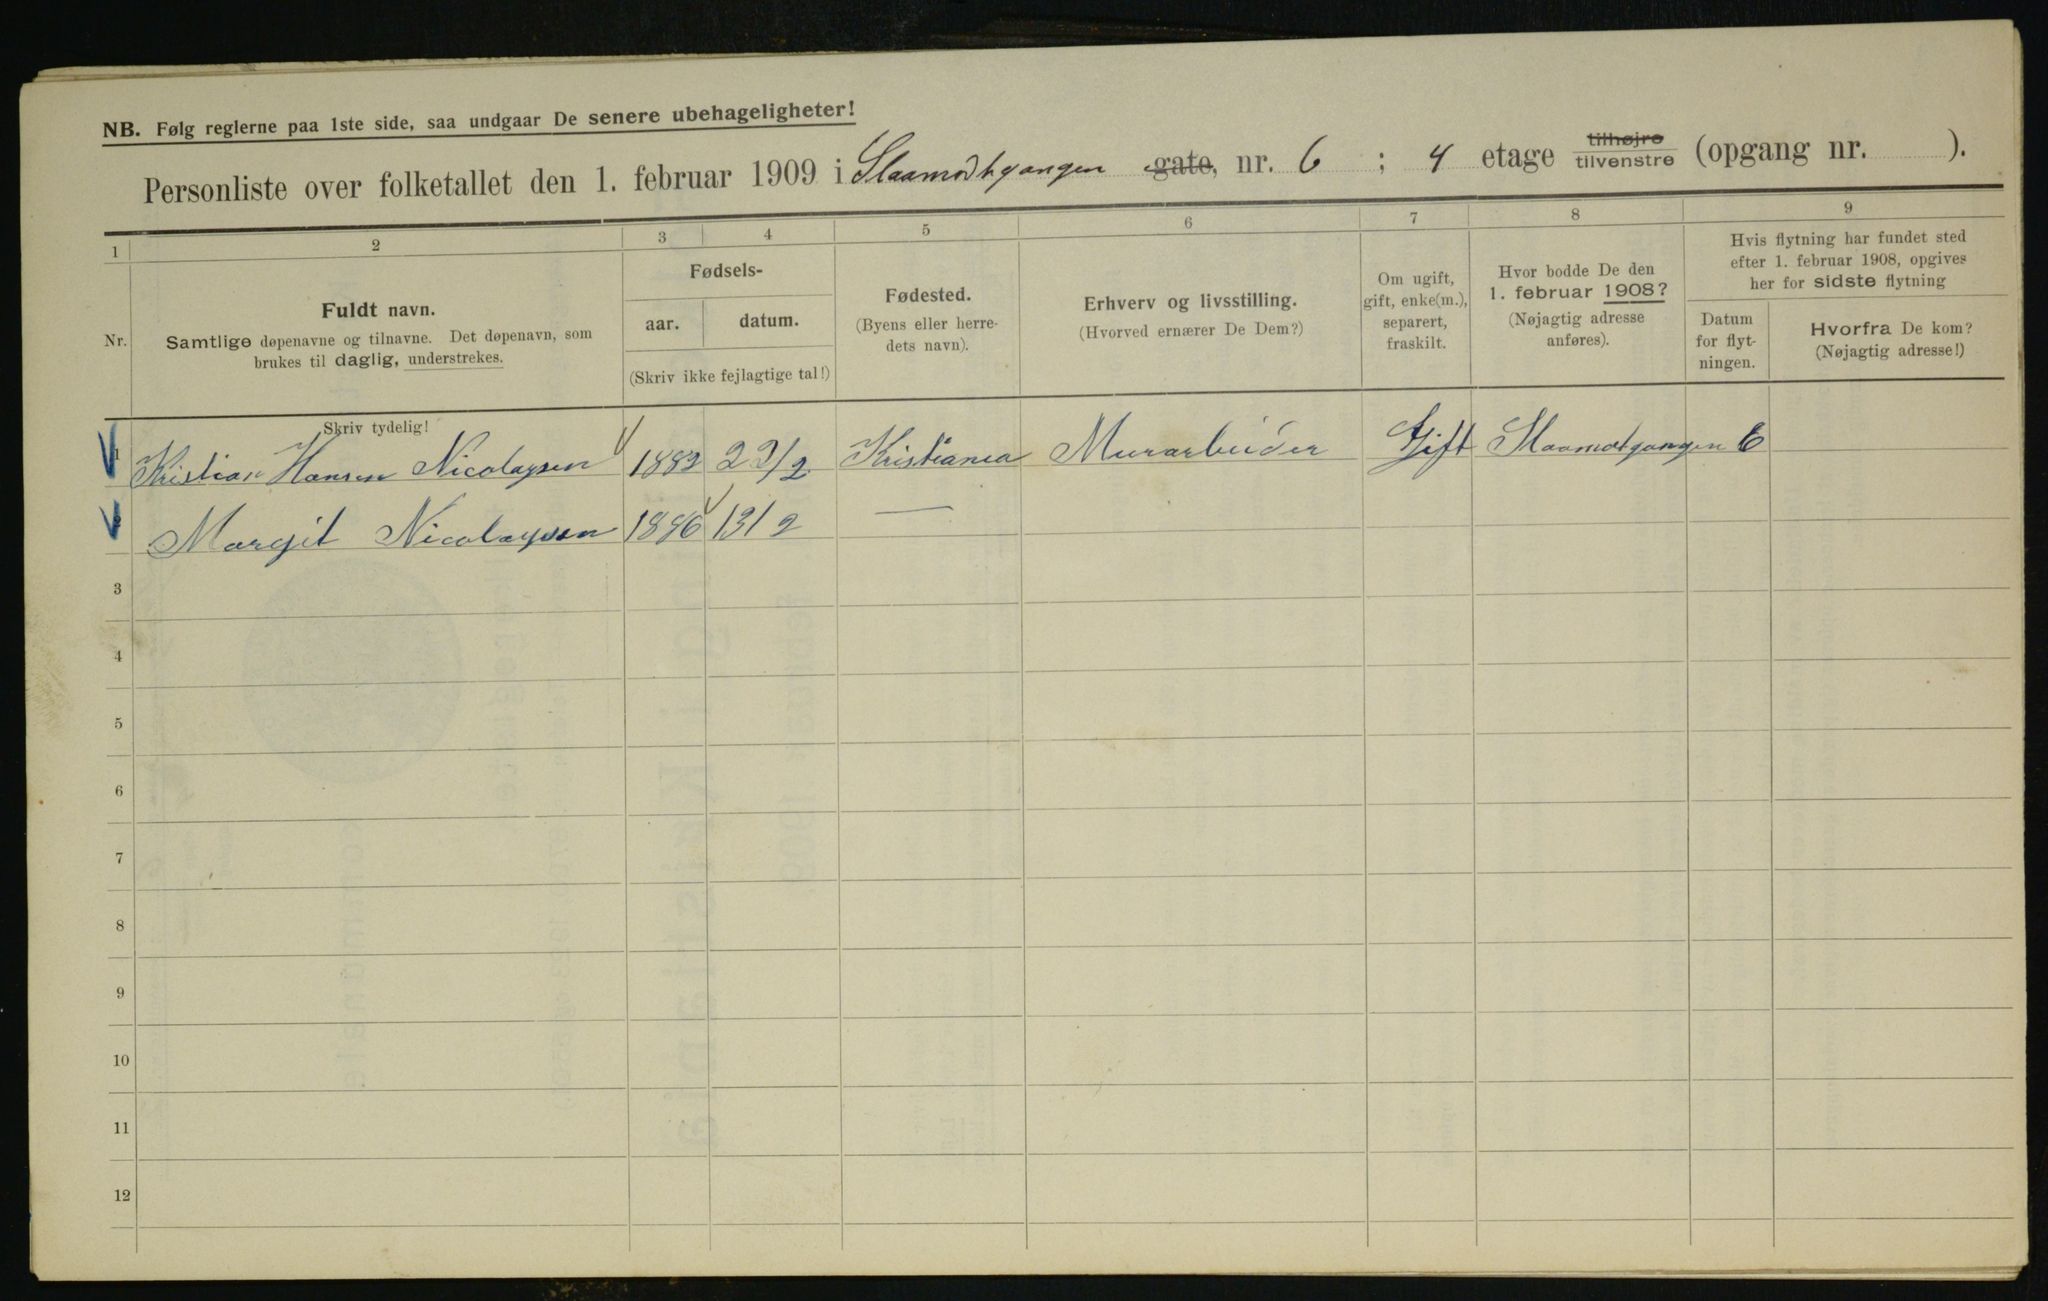 NB. Følg reglerne paa 1ste side, saa undgaar De senere ubehageligheter!
Personliste over folketallet den 1. februar 1909 i Slaamodtgangen gate, nr. 6 ; 4 etage tilhøjre tilvenstre (opgang nr. ).
1 2 3 4 5 6 7 8 9
Nr.
Fuldt navn.
Samtlige døpenavne og tilnavne. Det døpenavn, som
brukes til daglig, understrekes.
Fødsels-
aar. datum.
(Skriv ikke fejlagtige tal!)
Fødested.
(Byens eller herre-
dets navn).
Erhverv og livsstilling.
(Hvorved ernærer De Dem?)
Om ugift,
gift, enke(m.),
separert,
fraskilt.
Hvor bodde De den
1. februar 1908?
(Nøjagtig adresse
anføres).
Hvis flytning har fundet sted
efter 1. februar 1908, opgives
her for sidste flytning
Datum
for flyt-
ningen.
Hvorfra De kom?
(Nøjagtig adresse!)
Skriv tydelig!
1 Kristian Hansen Nicolaysen 1882 22/2 Kristiania Murarbeider Gift Slaamotgangen 6
2 Margit Nicolaysen 1886 13/2 —
3
4
5
6
7
8
9
10
11
12